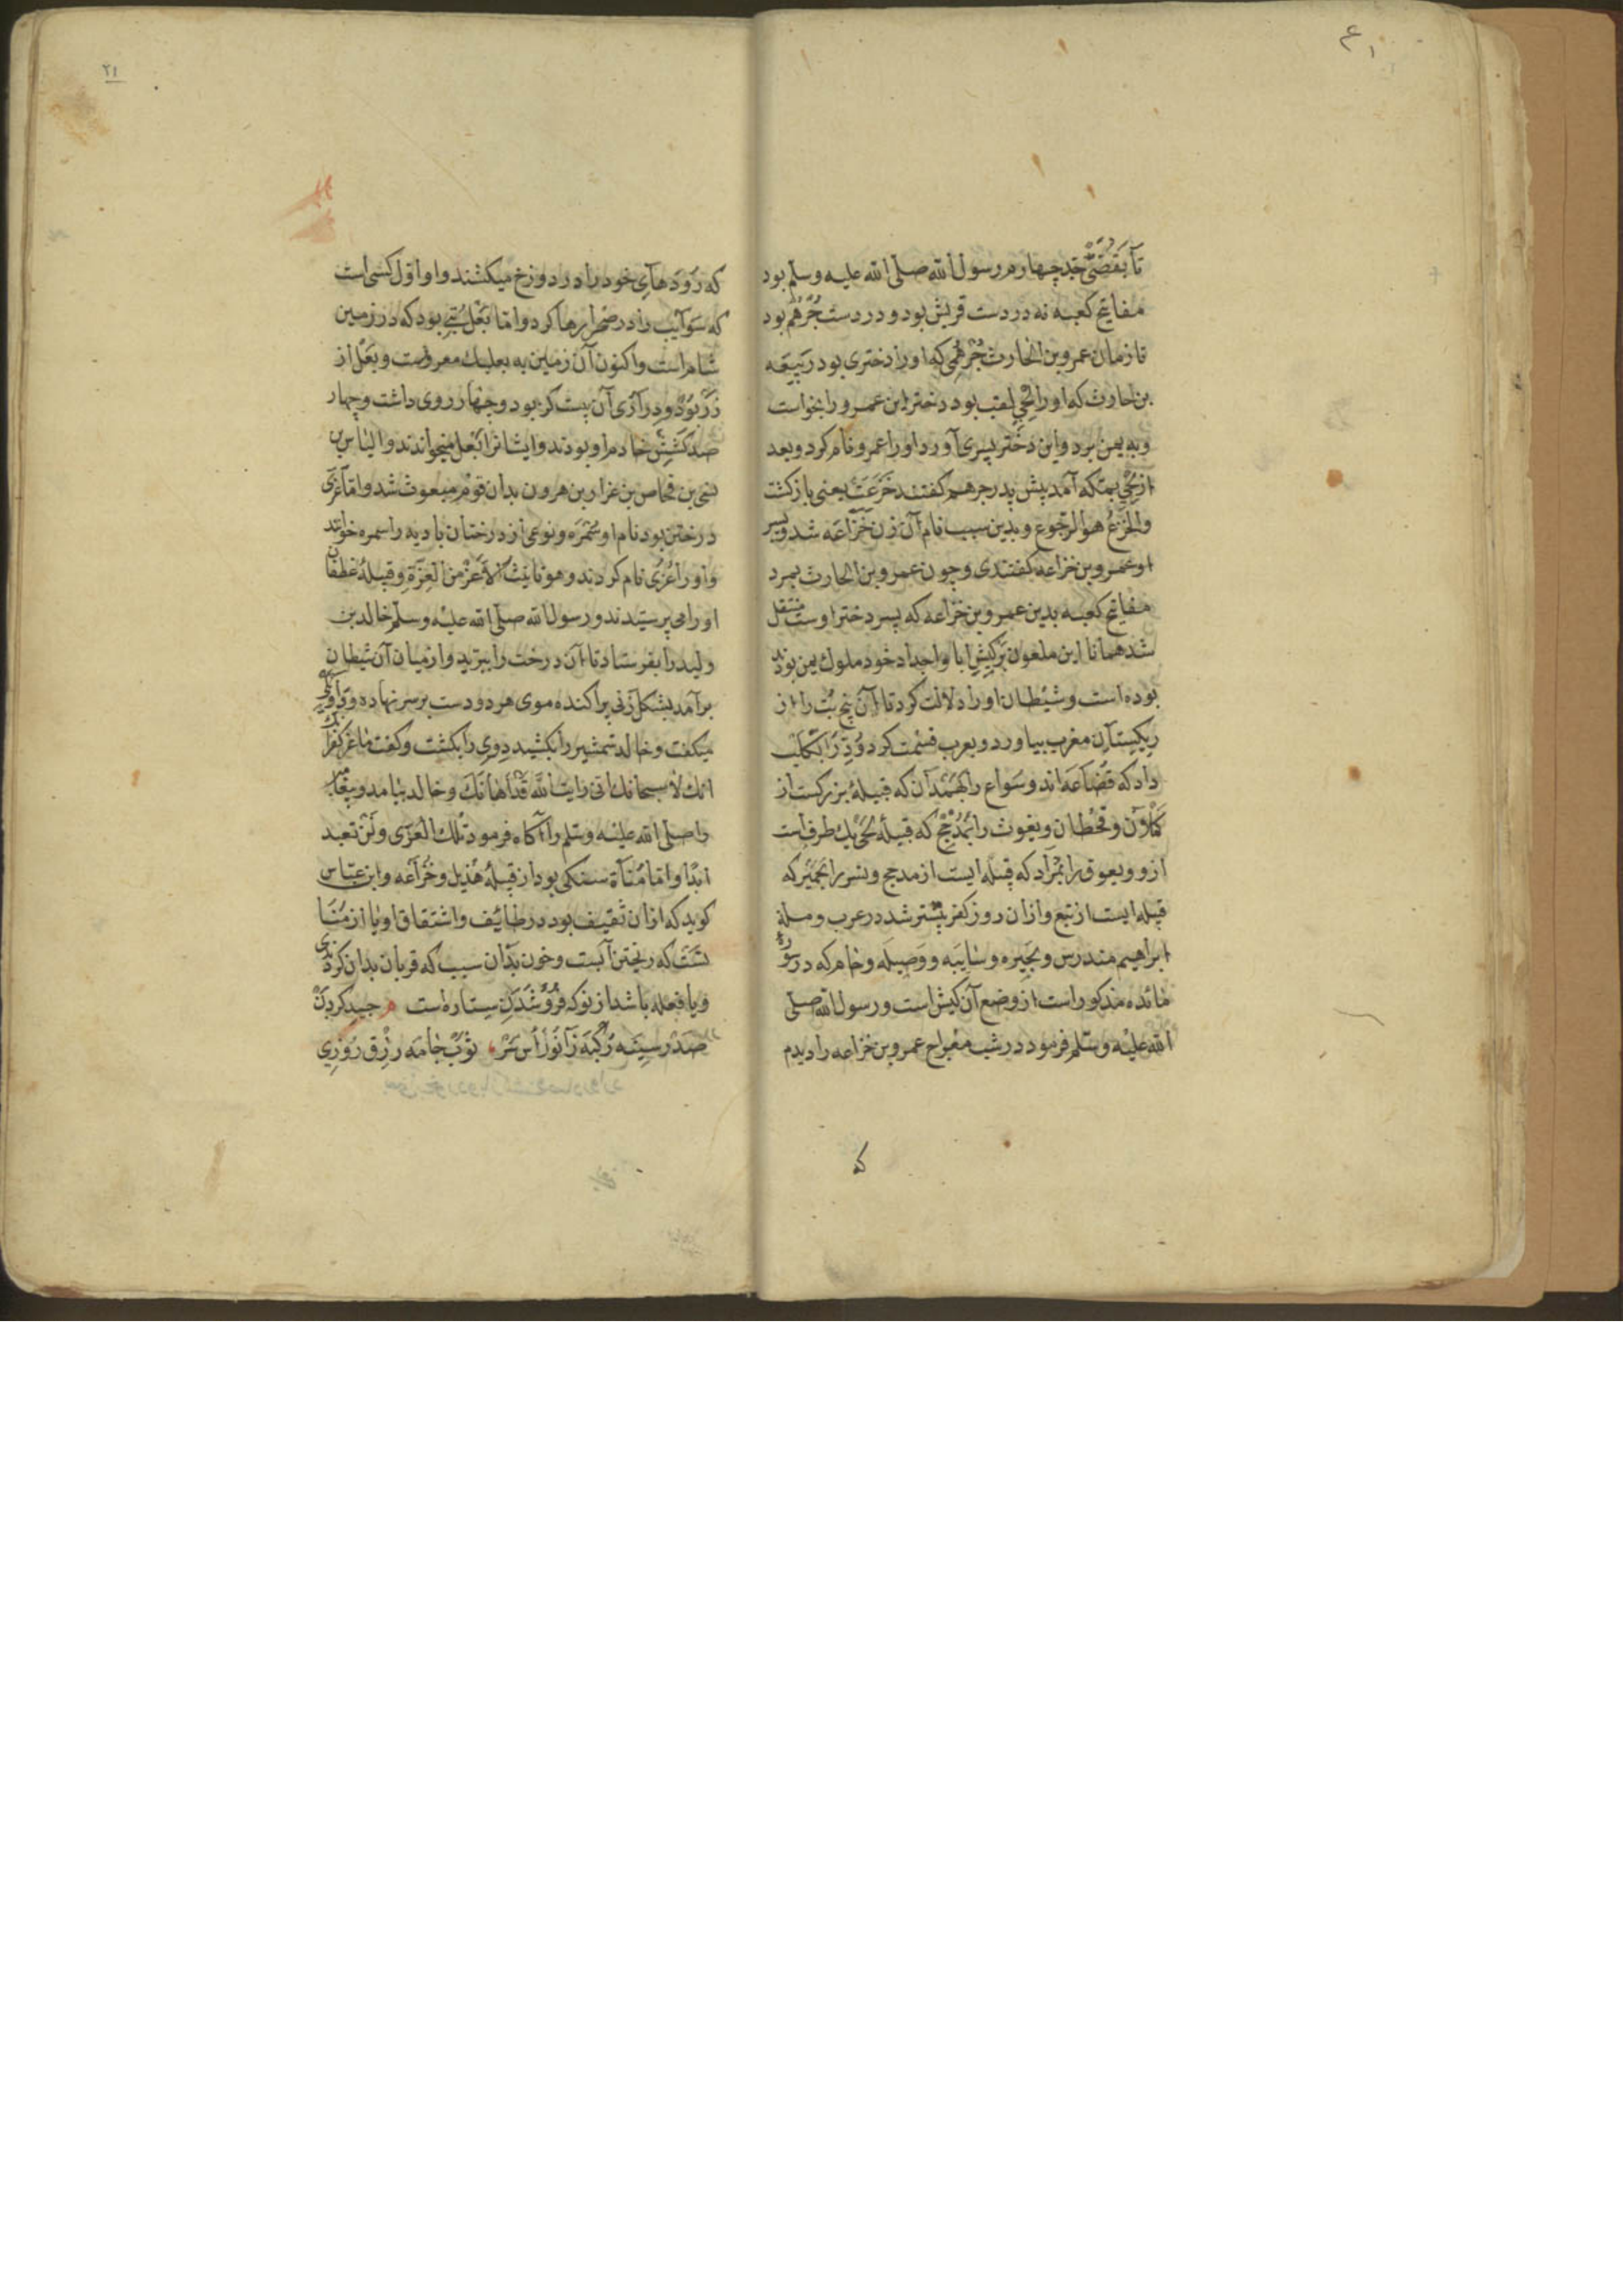 تا بقصی جد چهارم رسول الله صلی الله علیه وسلم بود
مفاتیح کعبه نه در دست قریش بود و در دست جرهم بود
تا زمان عمرو بن الحارث جرهمی که او را دختری بود ربیعه
بن حارث که او را لحی لقب بود دختر این عمرو را بخواست
و به یمن برد و این دختر پسری آورد او را عمرو نام کرد و بعد
از لحی بمکه آمد پیش پدر جرهم گفتند خزعت یعنی بازگشت
والخزع هو الرجوع و بدین سبب نام آن زن خزاعه شد و پسر
او عمرو بن خزاعه گفتندی و چون عمرو بن الحارث بمرد
مفاتیح کعبه بدین عمرو بن خزاعه که پسر دختر اوست منتقل
شد همانا این ملعون بر کیش ابا و اجداد خود ملوک یمن بود
بوده است و شیطان او را دلالت کرد تا آن پنج بت را از
ریکستان مغرب بیاورد و بعرب قسمت کرد ود را بکلب
داد که قضاعه اند و سواع را بهمدان که قبیلهٔ بزرکست از
کهلان و قحطان و یغوث را بمذحج که قبیلهٔ لحی یک طرف است
ازو و یعوق را بمراد که قبیله ایست از مدحج و نسر را بحمیر که
قبیله ایست از تبع و ازان روز کفر بیشتر شد در عرب و ملة
ابراهیم مندرس و بحیره و سایبه و وصیله و حام که در سوره
مائده مذکور است از وضع آن کیش است و رسول الله صلی
الله علیه وسلم فرمود در شب معراج عمرو بن خزاعه را دیدم
که
۲۱
که روده های خود را در دوزخ میکشند و او اول کسی است
که سوایب را در رها کرد و اما بعل بتی بود که در زمین
شام است و اکنون آن زمین به بعلبک معروفست و بعل از
زر بود و درازی آن بیست کز بود و چهار روی داشت و چهار
صد کشیش خادم او بودند و ایشانرا بعل میخواندند و الیاس بن
بن فحاص بن عزار بن هرون بدان قوم مبعوث شد و اما عزی
درختی بود نام او سمره و نوعی از درختان بادیه را سمره خوانند
و او را عزی نام کردند و هو تانیث الاعز من العزة و قبیلهٔ غطفان
او را می پرستیدند و رسول الله صلی الله علیه وسلم خالد بن
ولید را بفرستاد تا آن درخت را ببرید و از میان آن شیطان
برآمد بشکل زنی پراکنده موی هر دو دست بر سر نهاده
میکفت و خالد شمشیر را بکشید و وی را بکشت و کفت یا عز کفرانک
لا سبحانک انی رایت الله قد اهانک و خالد بیامد و پیغامبر
را صلی الله علیه وسلم را آکاه فرمود تلک العزی و لن تعبد
ابدا و اما مناة سنکی بود از قبیلهٔ هذیل و خزاعه و ابن عباس
کوید که ازان ثقیف بود در طایف و اشتقاق او یا از منا
که ریختن آبست و خون بدان سبب که قربان بدان کردندی
و یا فعله باشد از نو که فرو شدن ستاره است جید کردن
صدر سینه رکبه زانو راس سر ثوب جامه رزق روزی